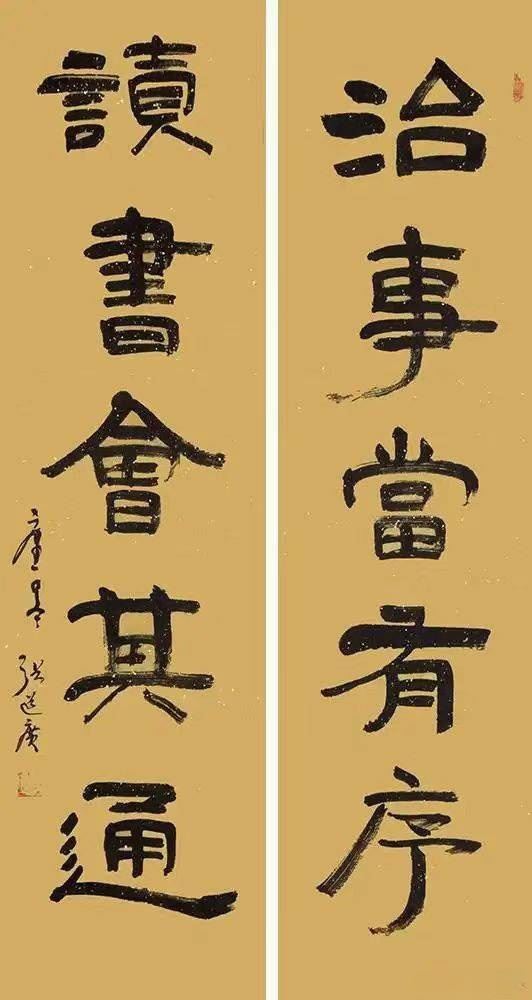 治事當有序
讀書會其通
張道廣